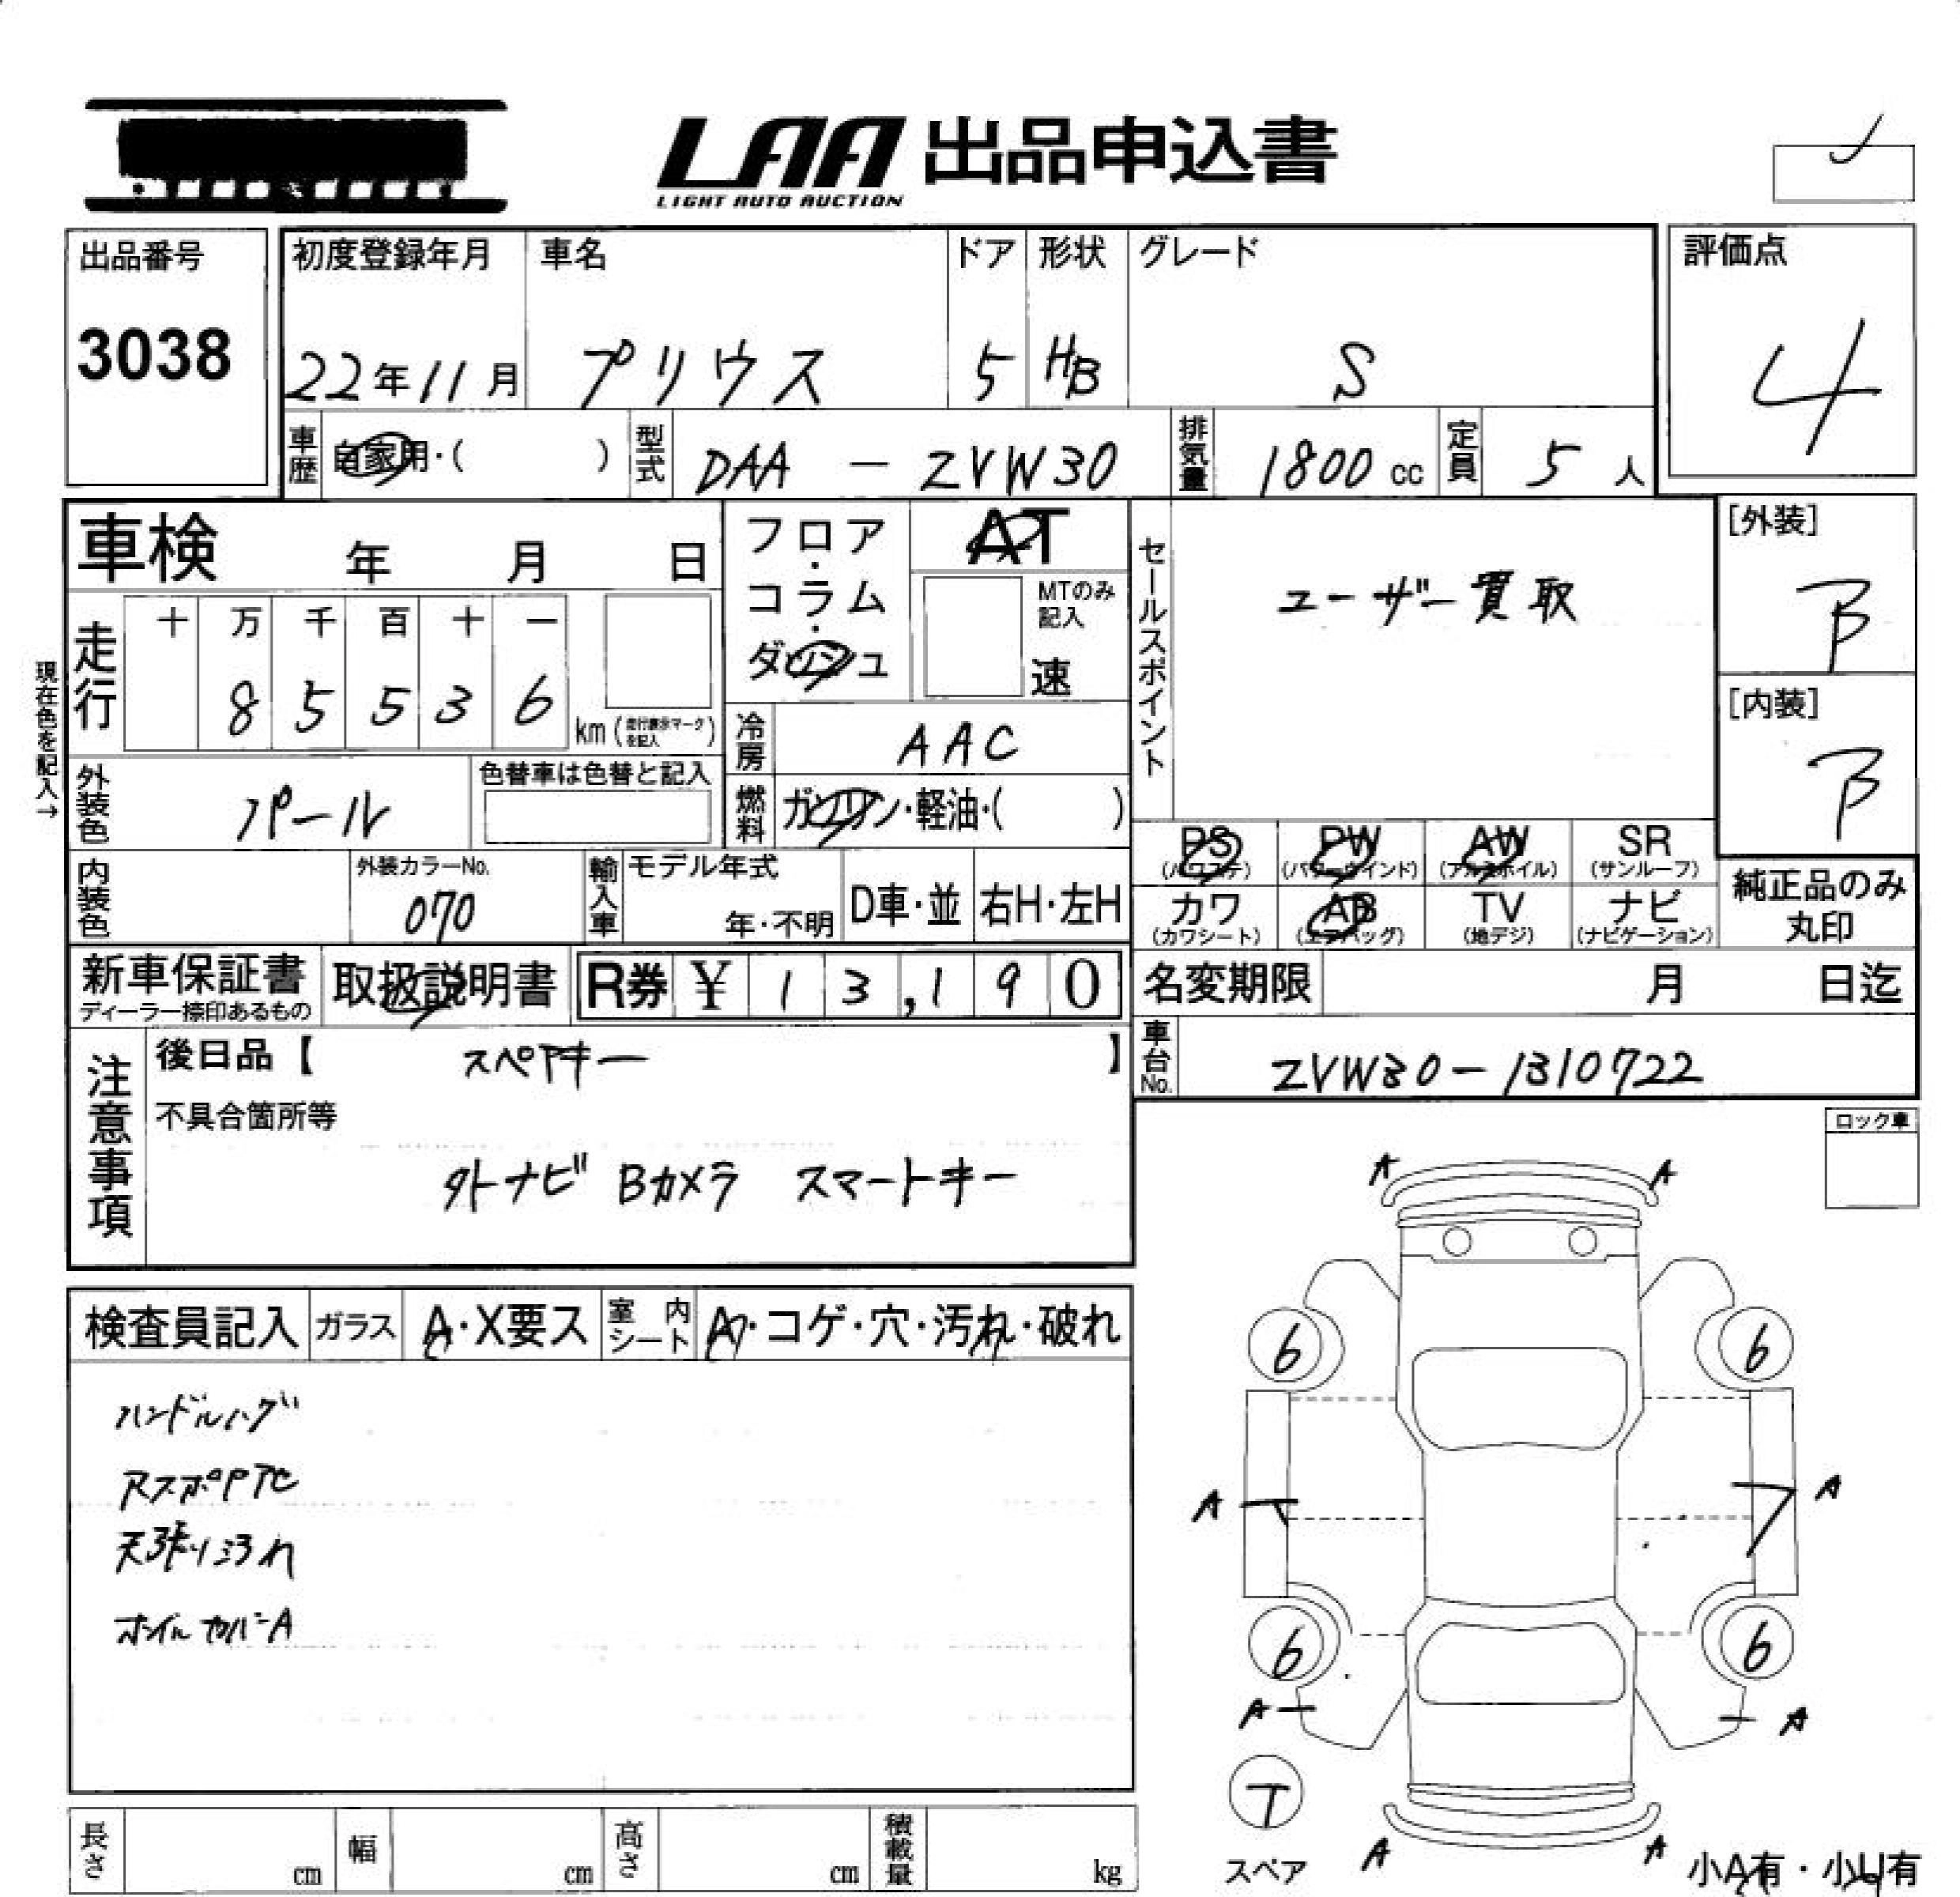 LAA 出品申込書
LIGHT AUTO AUCTION
出品番号
3038
初度登録年月 車名 ドア 形状 グレード
22年11月 プリウス 5 HB S
評価点
4
車歴 自家用・( ) 型式 DAA - ZVW30 排気量 1800 cc 定員 5 人
車検 年 月 日
フロア・コラム・ダッシュ
AT
MTのみ記入
速
セールスポイント
ユーザー買取
[外装]
B
[内装]
B
現在色を記入→
走行 十 万 千 百 十 一
8 5 5 3 6 km (走行表示マークを記入)
冷房 AAC
外装色 パール 色替車は色替と記入
燃料 ガソリン・軽油・( )
PS (パワステ) PW (パワーウインド) AW (アルミホイル) SR (サンルーフ)
カワ (カワシート) AB (エアバッグ) TV (地デジ) ナビ (ナビゲーション)
純正品のみ丸印
内装色 外装カラーNo. 070
輸入車 モデル年式 年・不明 D車・並 右H・左H
新車保証書 ディーラー捺印あるもの 取扱説明書 R券 ¥ 13,190
名変期限 月 日迄
車台No. ZVW30-1310722
注意事項
後日品【 スペアキー 】
不具合箇所等
外ナビ Bカメラ スマートキー
ロック車
検査員記入 ガラス A・X要ス 室内シート A・コゲ・穴・汚れ・破れ
ハンドルハゲ
天張り汚れ
ホイルカバーA
A A
6 6
A A
6 6
A A
T
スペア
A A
小A有・小U有
長さ cm 幅 cm 高さ cm 積載量 kg